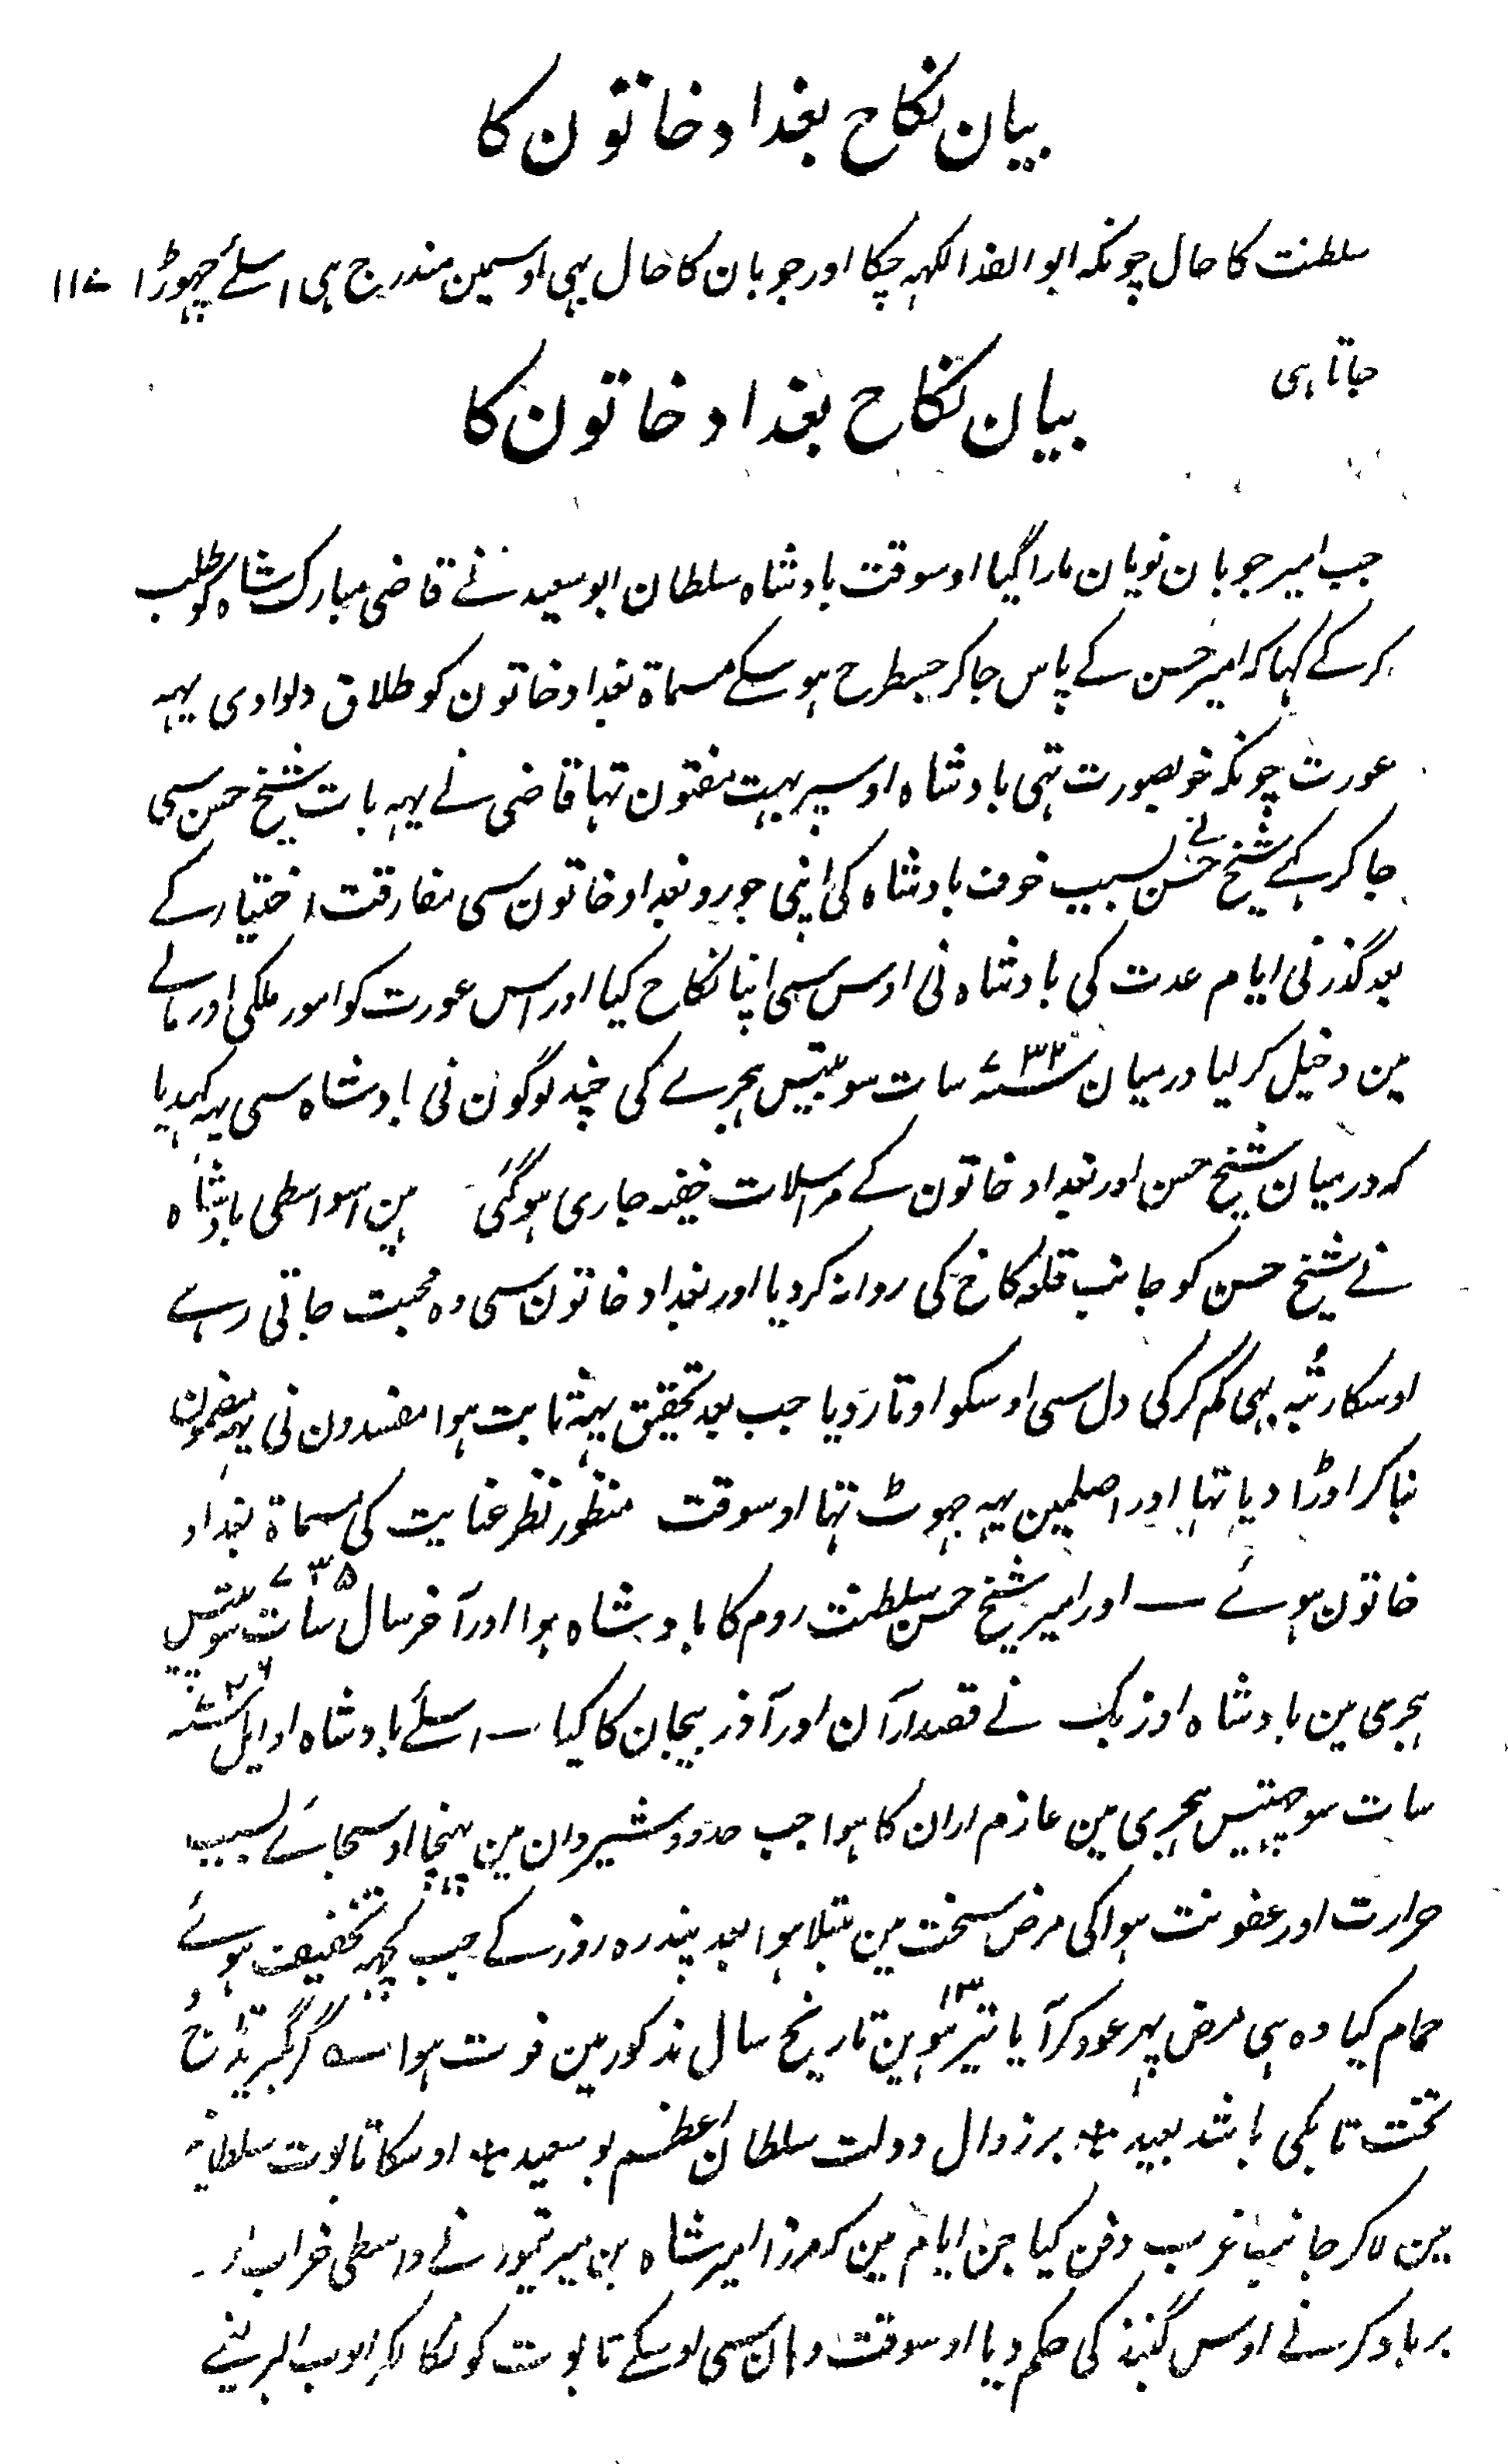 بیان نکاح بغداد خاتون کا
سلطنت کا حال چونکہ ابو الفدا لکہہ چکا اور جوبان کا حال بہی اوسمین مندرج ہی اسلئے چہوڑا ۱۱۷
جاتا ہی
بیان نکاح بغداد خاتون کا
جب امیر جوبان نویان مارا گیا اوسوقت بادشاہ سلطان ابو سعید نے قاضی مبارک شاہ کو طلب
کرکے کہا کہ امیر حسن کے پاس جا کر جسطرح ہو سکے مسماۃ بغداد خاتون کو طلاق دلوادی یہہ
عورت چونکہ خوبصورت تہی بادشاہ اوسپر بہت مفتون تہا قاضی نے یہہ بات شیخ حسن سی
جا کر کہے شیخ حسن نے بسبب خوف بادشاہ کی اپنی جورو بغداد خاتون سی مفارقت اختیار کے
بعد گذرنی ایام عدت کی بادشاہ نی اوس سی اپنا نکاح کیا اور اس عورت کو امور ملکی اور مالے
مین دخیل کر لیا درمیان ۷۳۲ سنہ سات سو بتیس ہجرے کی چند لوگون نی بادشاہ سی یہہ کہدیا
کہ درمیان شیخ حسن اور بغداد خاتون کے مراسلات خفیہ جاری ہوگئی ہین اسواسطی بادشاہ
نے شیخ حسن کو جانب قلعہ کاخ کی روانہ کردیا اور بغداد خاتون سی وہ محبت جاتی رہے
اوسکا رتبہ بہی کم کرکی دل سی اوسکو اوتار دیا جب بعد تحقیق یہہ ثابت ہوا مفسدون نی یہہ مضمون
بنا کر اوڑا دیا تہا اور اصلمین یہہ جہوٹ تہا اوسوقت منظور نظر عنایت کی مسماۃ بغداد
خاتون ہوئے ــ اور امیر شیخ حسن سلطنت روم کا بادشاہ ہوا اور آخر سال ۷۳۵ سات سو پینتیس
ہجری مین بادشاہ اوزبک نے قصد ارآن اور آذربیجان کا کیا ــ اسلئے بادشاہ اوایل ۷۳۶ سنہ
سات سو چہتیس ہجری مین عازم اران کا ہوا جب حدود شیروان مین پہنچا اوسجائے بسبب
حرارت اور عفونت ہوا کی مرض سخت مین مبتلا ہوا بعد پندرہ روز کے جب کچہہ تخفیف ہوئے
حمام کیا وہ ہی مرض پہر عود کر آیا تیرہوین ۱۳ تاریخ سال مذکور مین فوت ہوا ـہ گر بگرید تاج و
تخت تا بکی باشد بعید ٭ بر زوال دولت سلطان اعظم بو سعید ٭ اوسکا تابوت سلطانیہ
مین لا کر جانب غرب دفن کیا جن ایام مین کہ مرزا امیر شاہ بن میر تیمور نے واسطی خراب اور
برباد کرنے اوس گنبذ کی حکم دیا اوسوقت وہان سی اوسکے تابوت کو نکالکر